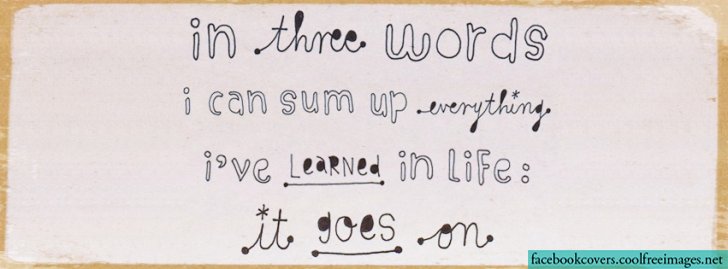 in three words
i can sum up everything
i've LeaRNed in Life:
it goes on.
facebookcovers.coolfreeimages.net